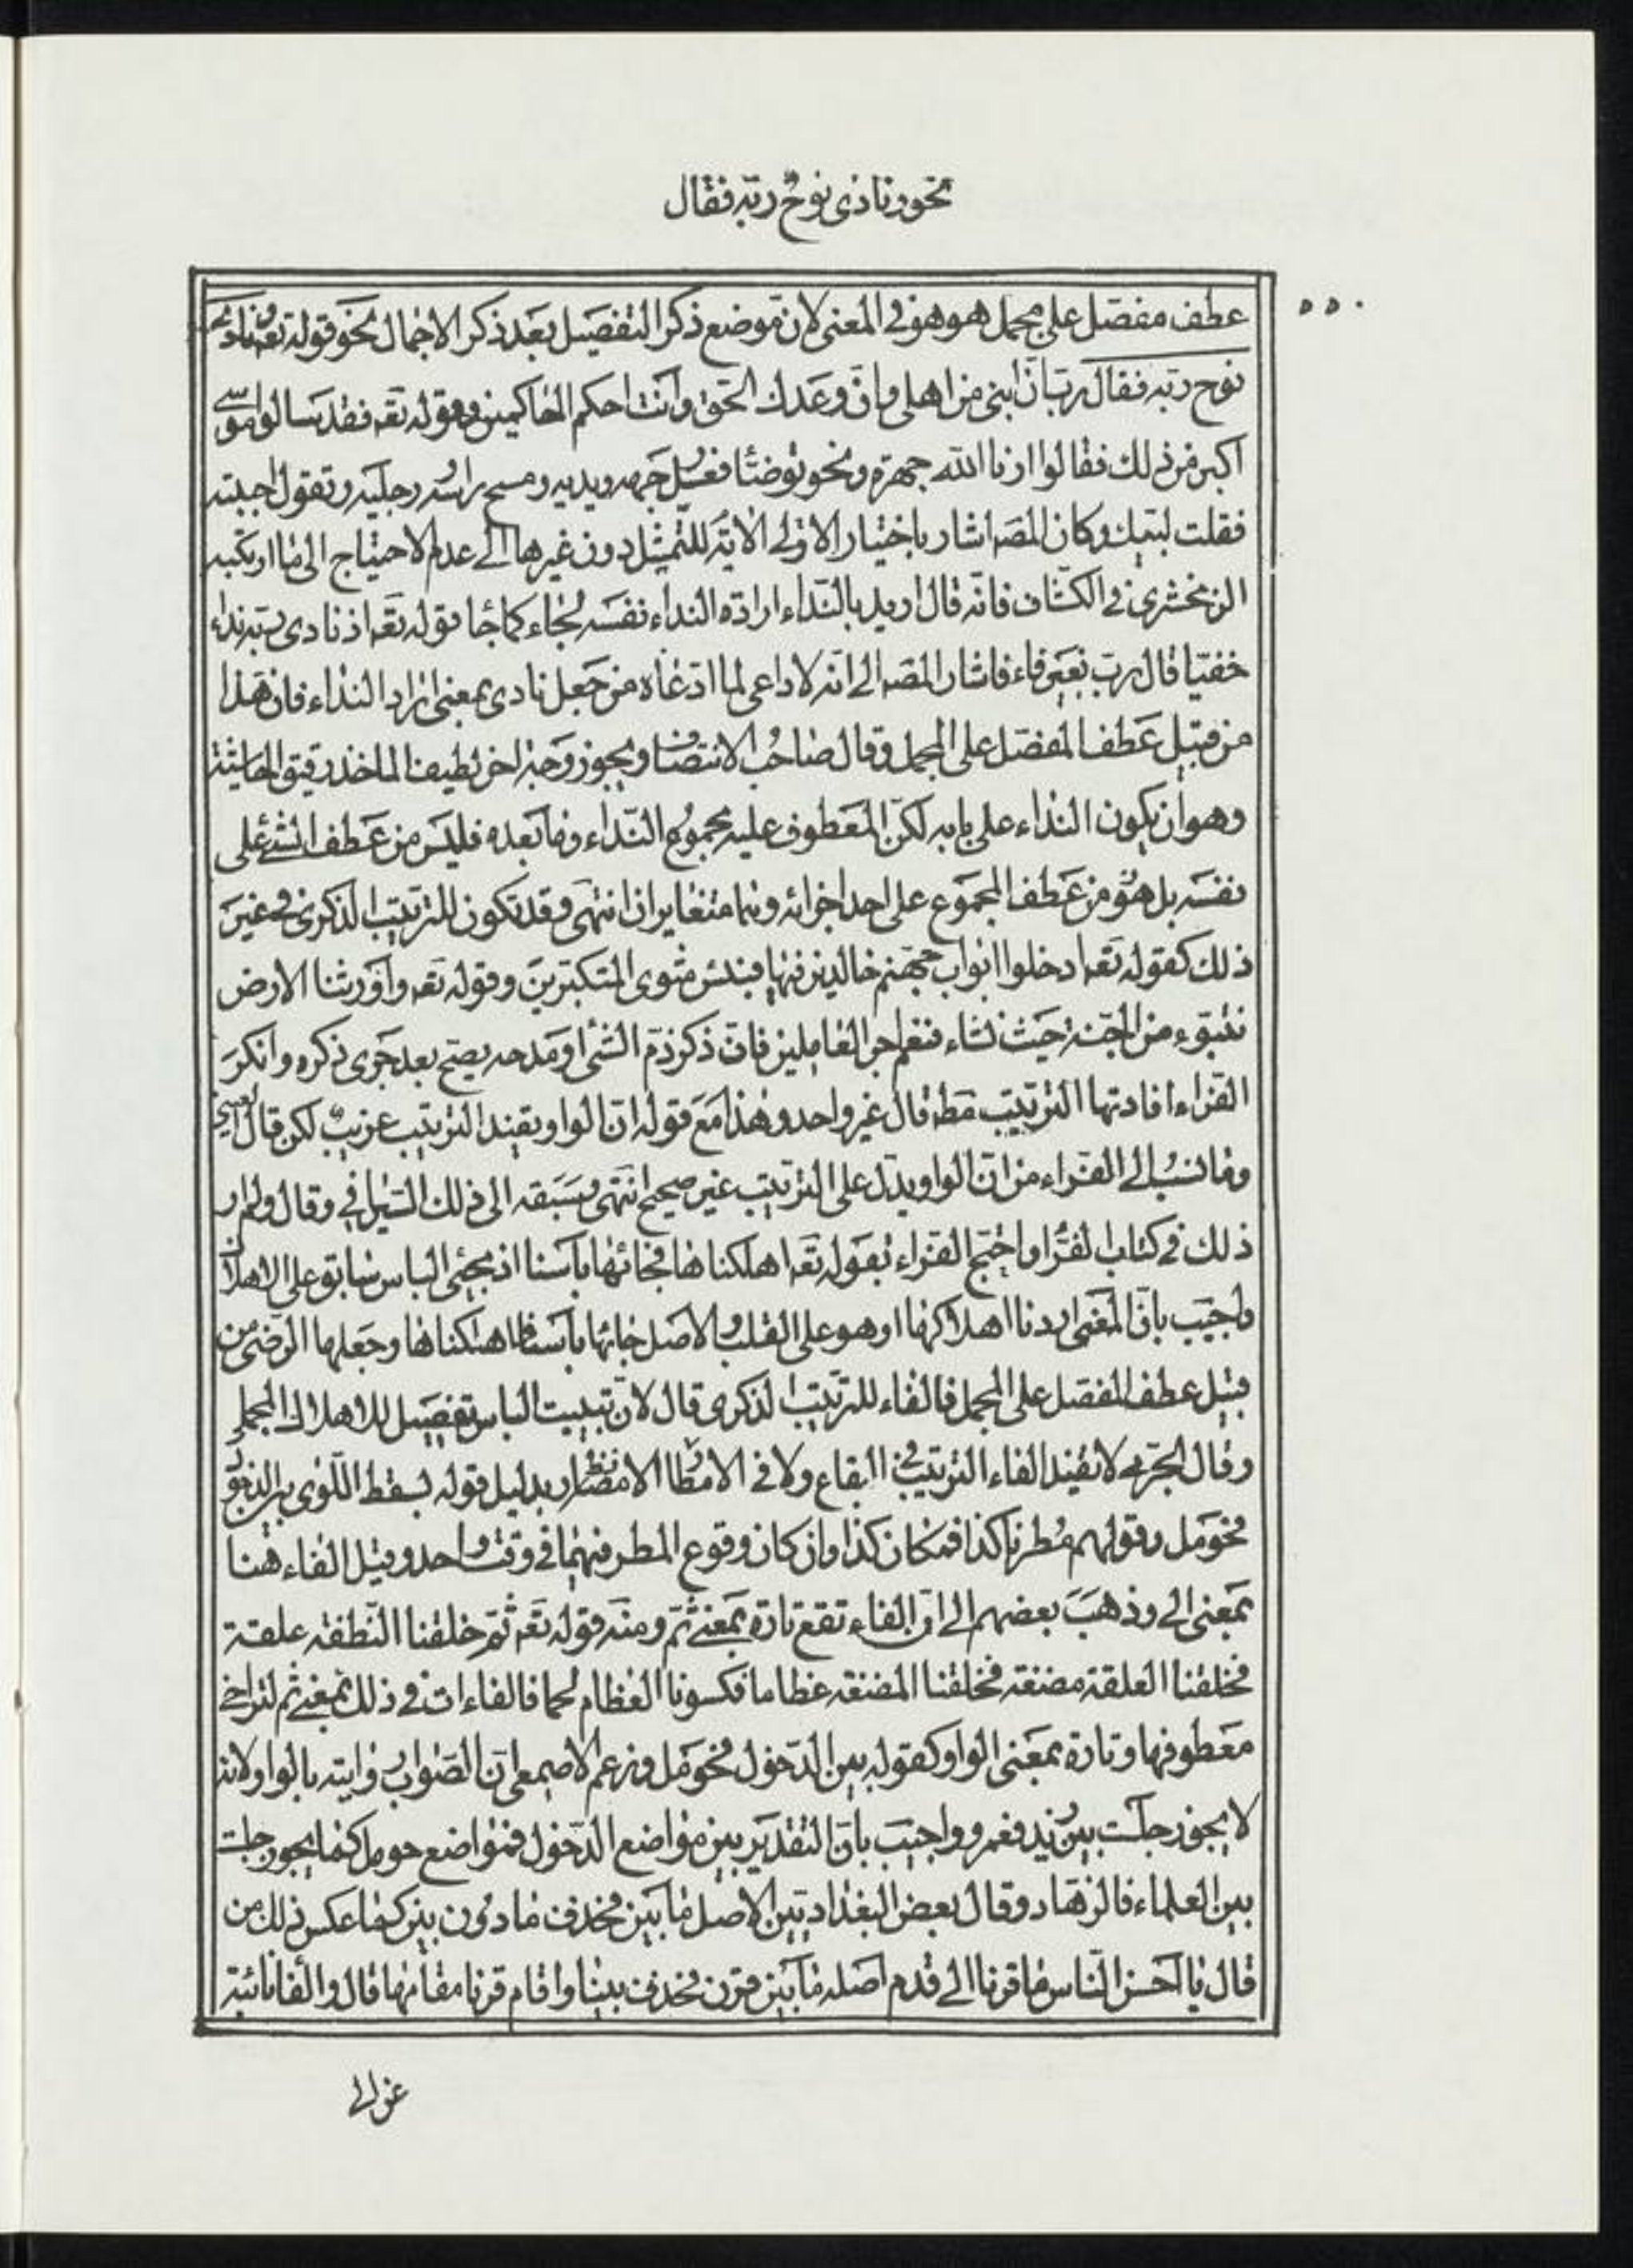 نحو ونادى نوحٌ ربّه فقال
۵۵۰
عطف مفصّل على مجمل هو هو في المعنى لان موضع ذكر التفصيل بعد ذكر الاجمال نحو قوله تعه ونادى
نوح ربّه فقال ربّ انّ ابنى من اهلى وانّ وعدك الحقّ وانت احكم الحاكمين وقوله تعه فقد سالوا موسى
اكبر من ذلك فقالوا ارنا الله جهرة ونحو توضّأ فغسل وجهه ويديه ومسح راسه ورجليه وتقول اجبته
فقلت لبّيك وكان المصه اشار باختيار الاولى الآية للتمثيل دون غيرها الى عدم الاحتياج الى ما ارتكبه
الزمخشرى فى الكشّاف فانّه قال اريد بالنّداء ارادة النداء نفسه لجاء كما جا قوله تعه اذ نادى ربّه نداء
خفيّا قال ربّ بغير فاء فاشار المصه الى انّه لا داعى لما ادّعاه من جعل نادى بمعنى اراد النداء فان هذا
من قبيل عطف المفصّل على المجمل وقال صاحب الانتصاف ويجوز وجه اخر لطيف الماخذ دقيق الحاشية
وهو ان يكون النداء على بابه لكنّ المعطوف عليه مجموع النّداء وما بعده فليس من عطف الشئ على
نفسه بل هو من عطف المجموع على احد اجزائه وهما متغايران انتهى وقد تكون للترتيب الذكرى فى غير
ذلك كقوله تعه ادخلوا ابواب جهنم خالدين فيها فبئس مثوى المتكبّرين وقوله تعه واورثنا الارض
نتبوّء من الجنّة حيث نشاء فنعم اجر العاملين فانّ ذكر ذمّ الشئ او مدحه يصحّ بعد جرى ذكره وانكر
الفرّاء افادتها الترتيب مطه قال غير واحد وهذا مع قوله انّ الواو يفيد الترتيب غريبٌ لكن قال
وما نسب الى الفرّاء من انّ الواو يدلّ على الترتيب غير صحيح انتهى وسبقه الى ذلك السّيرافي وقال ولم ار
ذلك فى كتاب الفرّا واحتجّ الفرّاء بقوله تعه اهلكناها فجائها بأسنا اذ مجئ الباس سابق على الاهلاك
واجيب بانّ المعنى اردنا اهلاكها او هو على القلب والاصل جائها بأسنا فاهلكناها وجعلها الرّضى من
قبيل عطف المفصل على المجمل فالفاء للترتيب الذكرى قال لانّ تبييت الباس تفصيل للاهلاك المجمل
وقال الجرمى لا تفيد الفاء الترتيب فى البقاع ولا فى الامطار بدليل قوله بسقط اللّوى بين الدخول
فحومل وقولهم مُطرنا كذا فمكان كذا وان كان وقوع المطر فيهما فى وقت واحد وقيل الفاء هنا
بمعنى الى وذهب بعضهم الى انّ الفاء تقع تارة بمعنى ثمّ ومنه قوله تعه ثمّ خلقنا النّطفة علقة
فخلقنا العلقة مضغة فخلقنا المضغة عظاما فكسونا العظام لحما فالفاءات فى ذلك بمعنى ثم لتراخى
معطوفها وتارة بمعنى الواو كقوله بين الدّخول فحومل وزعم الاصمعى انّ الصّواب روايته بالواو لانّه
لا يجوز جلست بين زيد فعمرو واجيب بانّ التقدير بين مواضع الدّخول فمواضع حومل كما يجوز جلست
بين العلماء فالزهّاد وقال بعض البغداديّين الاصل ما بين فحذف ما دون بين كما عكس ذلك من
قال يا احسن النّاس ما قرنا الى قدم اصله ما بين قرن فحذف بين واقام قرنا مقامها قال والفا نائبة
عن الى